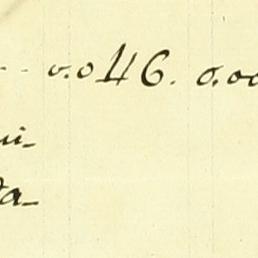 - - 0.046. 0.00
ui-
da-